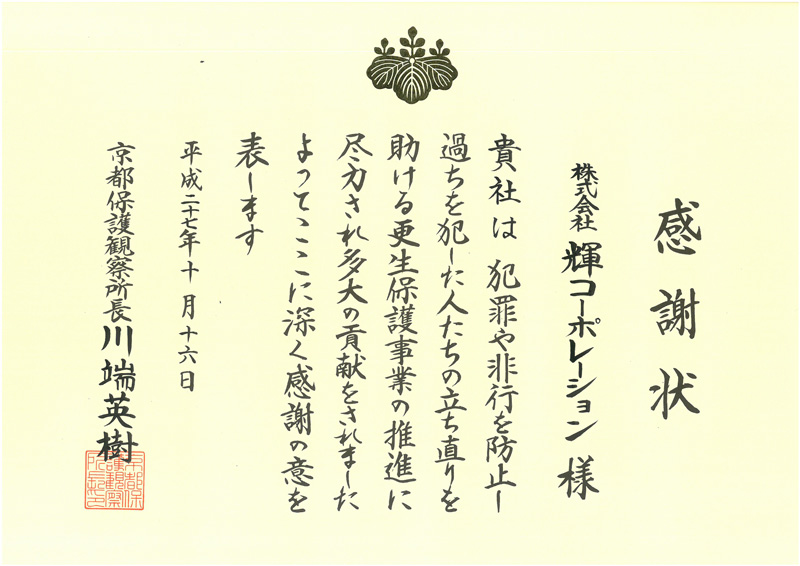 感謝状
株式会社 輝コーポレーション 様
貴社は 犯罪や非行を防止し
過ちを犯した人たちの立ち直りを
助ける更生保護事業の推進に
尽力され多大の貢献をされました
よってここに深く感謝の意を
表します
平成二十七年十月十六日
京都保護観察所長 川端英樹
京都保
護観察
所長印